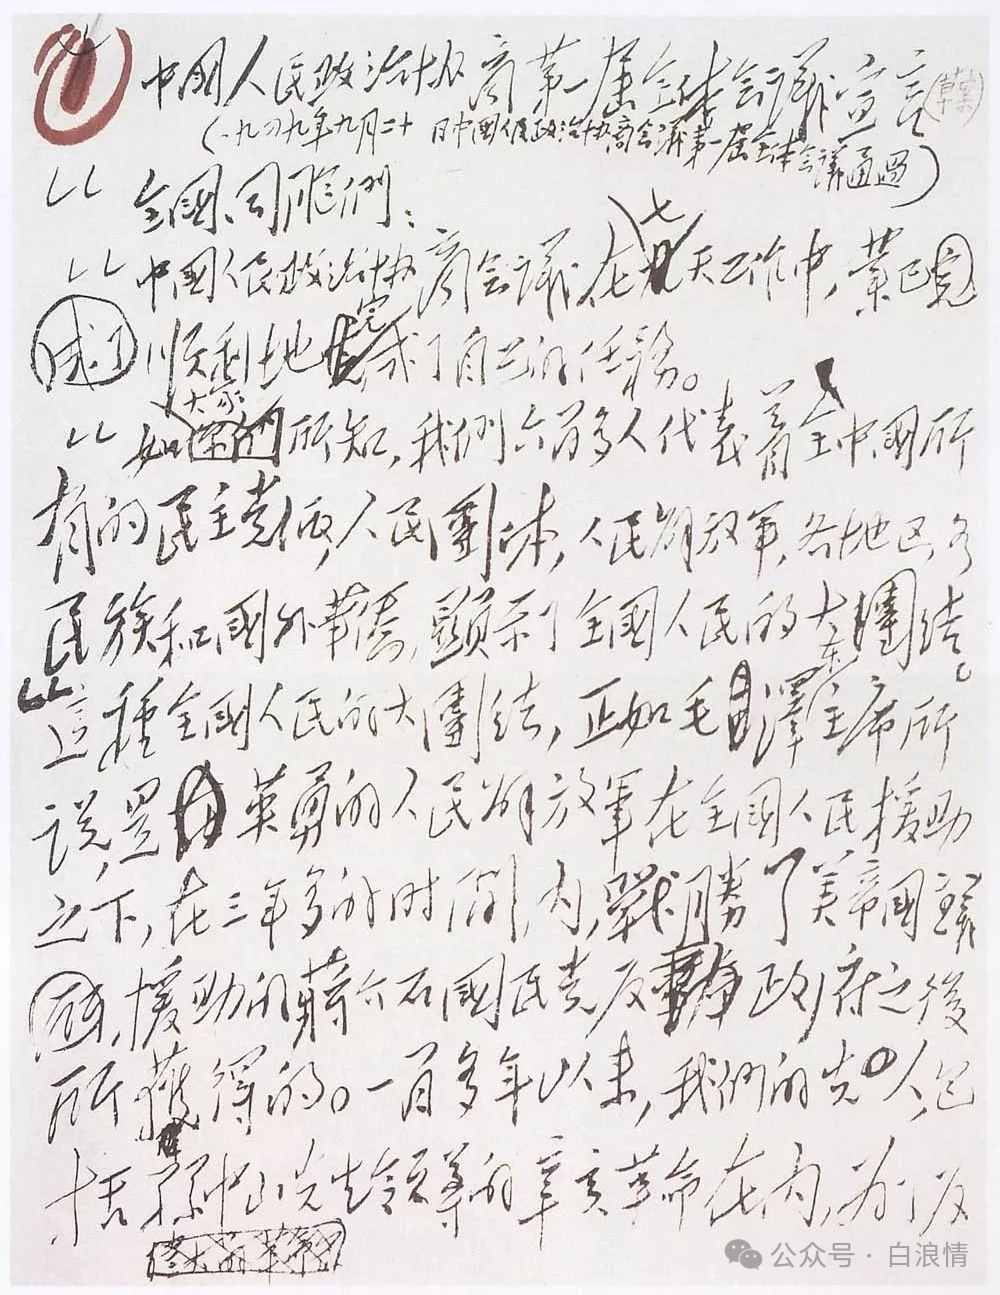 中國人民政治协商第一届全体会議宣言(草案)
(一九四九年九月二十 日中國人民政治协商会議第一届全体会議通過)
全國同胞們:
七
中國人民政治协商会議在九天工作中,業已完
完
成了順利地 成了自己的任務。
大家
如 所知,我們六百多人代表着全中國所
有的民主党派,人民團体,人民解放軍,各地区,各
民族和國外華僑,顕示了全國人民的大團結。
东
這種全國人民的大團結,正如毛 澤主席所
說,是 英勇的人民解放軍在全國人民援助
之下,在三年多的时间内,戰勝了美帝國主義
援助的蔣介石國民党反 政府之後
所獲得的。一百多年以来,我們的先人,包
括孫中山先生領導的辛亥革命在内,为了反
偉大的革命
公众号·白浪情